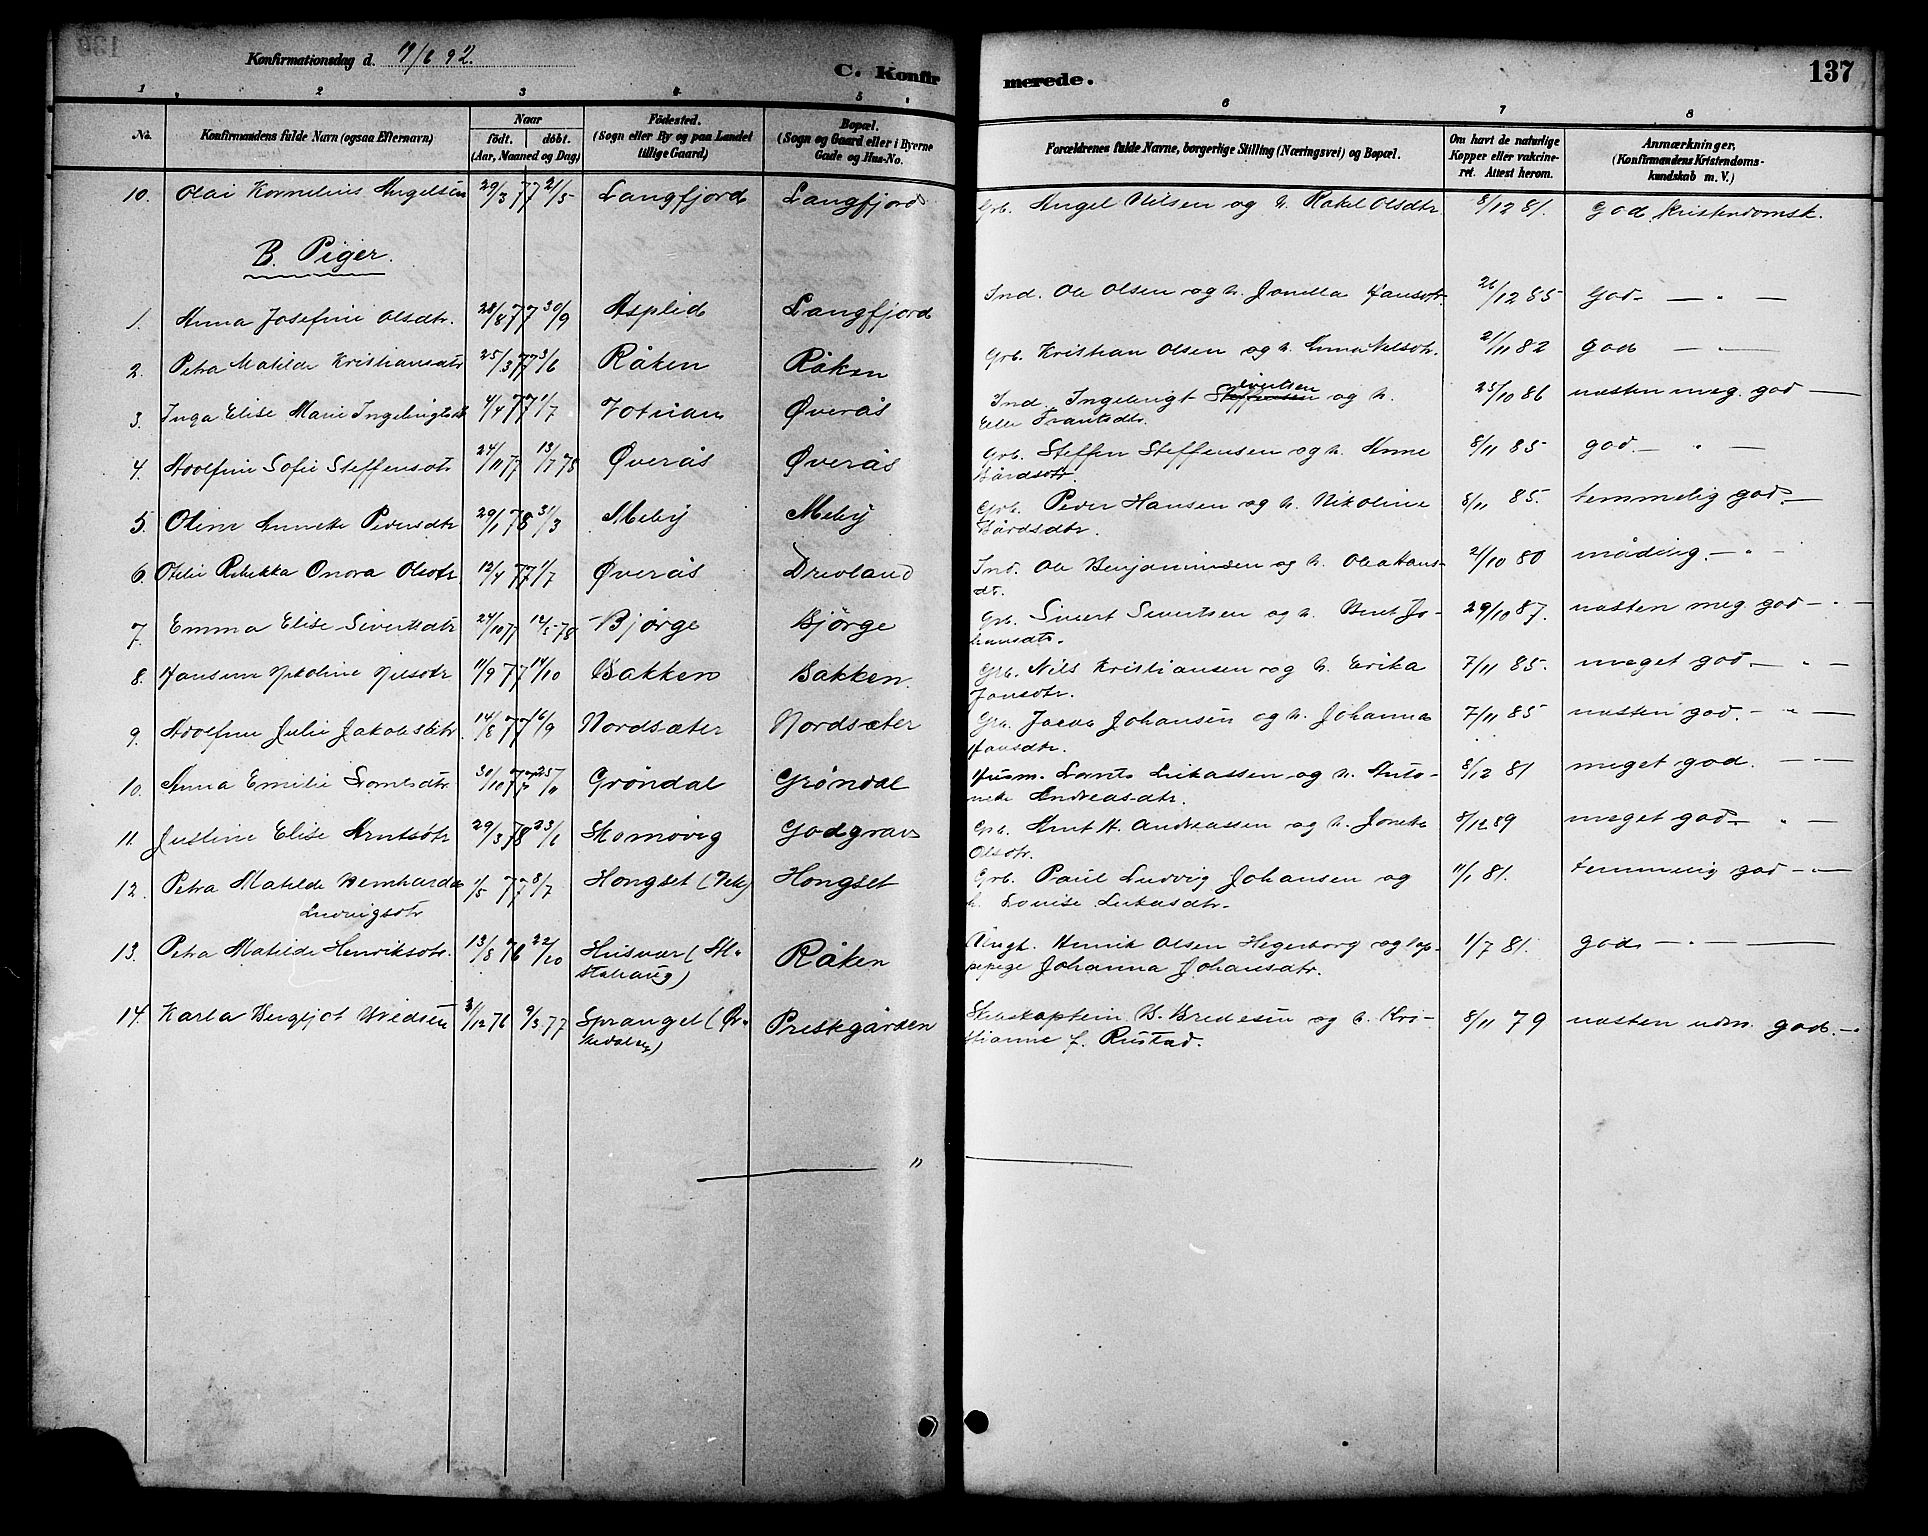 Konfirmationsdag d. 19/6 92.
C. Konfir merede. 137
1 2 3 4 5 6 7 8
No. Konfirmandens fulde Navn (ogsaa Efternavn) Naar födt. döbt. (Aar, Maaned og Dag) Födested. (Sogn eller By og paa Landet tillige Gaard) Bopæl. (Sogn og Gaard eller i Byerne Gade og Hus-No. Forældrenes fulde Navne, borgerlige Stilling (Næringsvei) og Bopæl. Om havt de naturlige Kopper eller vakcineret. Attest herom. Anmærkninger, (Konfirmandens Kristendomskundskab m. V.)
10. Olai Kornelius Angelsen 29/3 77 21/5 Langfjord Langfjord Grb. Angel Nilsen og h. Rakel Olsdtr. 8/12 81. god kristendomsk.
B. Piger.
1. Anna Josefine Olsdtr. 28/8 77 30/9 Asplid Langfjord Ind. Ole Olsen og h. Jonella Hansdtr. 26/12 85 God — " —
2. Petra Matilde Kristiansdtr 25/3 77 3/6 Råken Råken Grb. Kristian Olsen og h. Anna Nelsdtr. 21/11 82 god — " —
3. Inga Elise Marie Ingebrigtsdtr 4/4 77 1/7 Votvian Øverås Ind. Ingebrigt Steffensen Sivertsen og h.
Ellen Frantsdtr. 25/10 86 næsten meg. god —
4. Adolfine Sofie Steffensdtr 24/11 77 13/7 78 Øverås Øverås Grb. Steffen Steffensen og h. Anne
Bårdsdtr. 8/11 85 god. — " —
5. Oline Anneke Pedersdtr 29/1 78 31/3 Meby Meby Grb. Peder Hansen og h. Nikoline
Bårdsdtr. 8/11 85. temmelig god —
6. Otelie Rebekka Onora Olsdtr 12/4 77 1/7 Øverås Drevland Ind. Ole Benjaminsen og h. Olea Hans-
dtr. 21/10 80 mådelig. — " —
7. Emma Elise Sivertsdtr 24/10 77 12/5 78 Bjørge Bjørge Grb. Sivert Sivertsen og h. Beret Jo-
hansdtr. 29/10 87. næsten meg. god — " —
8. Hansine Nikoline Nilsdtr 11/9 77 14/10 Bakken Bakken. Grb. Nils Kristiansen og h. Erika
Jonsdtr. 7/11 85. meget god. — " —
9. Adolfine Julie Jakobsdtr. 14/8 77 16/9 Nordsæter Nordsæter Grb. Jacob Johansen og h. Johanna
Hansdtr. 7/11 85 næsten god. — " —
10. Anna Emilie Lorntsdtr 30/10 77 25/11 Grøndal Grøndal Husm. Lornts Lukassen og h. Anto-
nette Andreasdtr. 8/12 81 meget god. — " —
11. Justine Elise Arntsdtr 29/3 78 23/6 Skomovig Godgrav Grb. Arnt H. Andreassen og h. Jonetta
Olsdtr. 8/12 89 meget god — " —
12. Petra Matilde Bernharda
Ludvigsdtr 1/5 77 8/7 Hongset Hongset Grb. Paul Ludvig Johansen og
h. Lovise Lukasdtr. 11/1 81. temmelig god — " —
13. Petra Matilde Henriksdtr. 13/8 76 22/10 Husvær (
Alstahaug) Råken Ungk. Henrik Olsen Hegerborg og
pige Johanna Johansdtr. 1/7 81. god — " —
14. Karla Bergljot Bredesen 3/12 76 9/3 77 Spranget Prestgården Skibskaptein B. Bredesen og h. Kri-
stianne f. Rustad. 8/11 79 næsten udm. god. — "
"